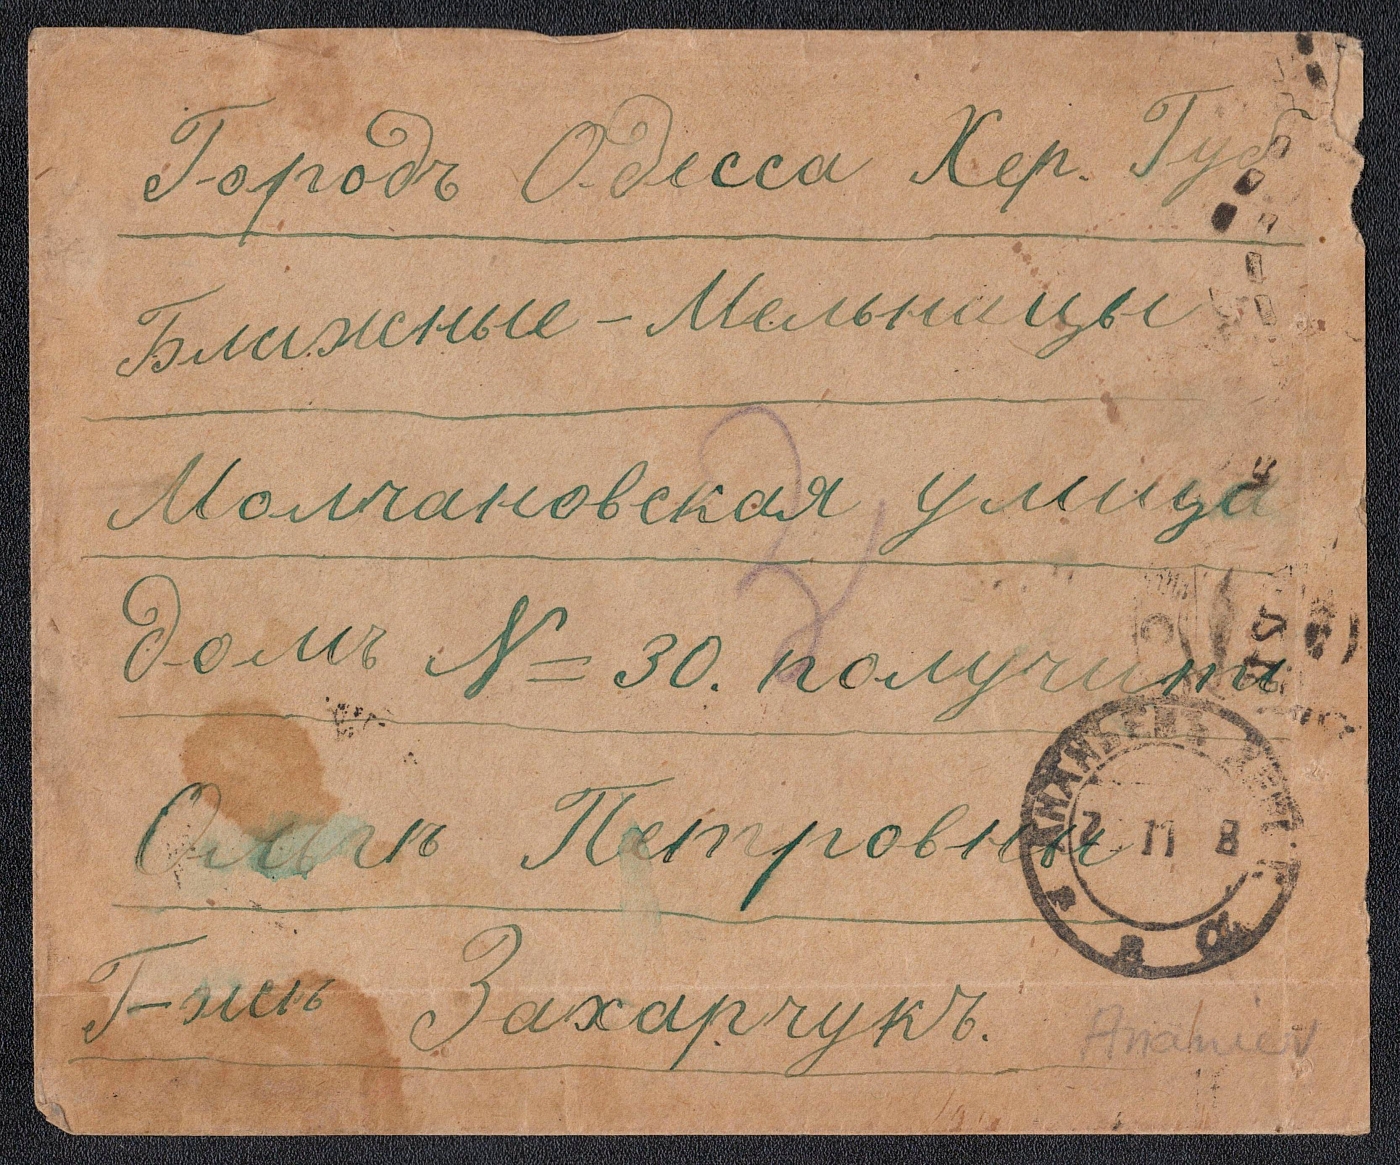 Городъ Одесса Хер. Губ
Ближные - Мельницы
Молчановская улица
домъ № 30. получить
Ользѣ Петровнѣ
Г-жѣ Захарчукъ.
АНАНЬЕВЪ ХЕРС. Г.
2 11 8
а а а
Ananiev